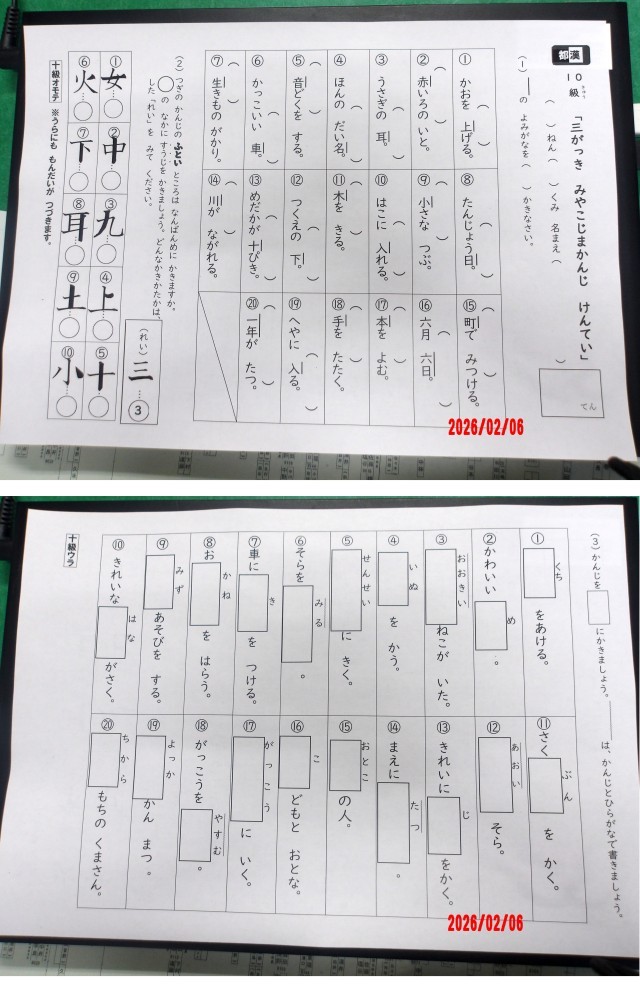 漢
都
10級 「三がっき みやこじまかんじ けんてい」
( )ねん ( )くみ 名まえ( )
てん
(1)――の よみがなを( )かきなさい。
① かおを 上げる。
② 赤いろの いと。
③ うさぎの 耳。
④ ほんの だい名。
⑤ 音どくを する。
⑥ かっこいい 車。
⑦ 生きもの がかり。
⑧ たんじょう日。
⑨ 小さな つぶ。
⑩ はこに 入れる。
⑪ 木を きる。
⑫ つくえの 下。
⑬ めだかが 十ぴき。
⑭ 川が ながれる。
⑮ 町で みつける。
⑯ 六月 六日。
⑰ 本を よむ。
⑱ 手を たたく。
⑲ へやに 入る。
⑳ 一年が たつ。
(2)つぎの かんじの ふとい ところは なんばんめに かきますか。
○の なかに すうじを かきましょう。どんなかきかたかは、
した「れい」を みて ください。
(れい) 三…③
① 女…
② 中…
③ 九…
④ 上…
⑤ 十…
⑥ 火…
⑦ 下…
⑧ 耳…
⑨ 土…
⑩ 小…
十級オモテ ※うらにも もんだいが つづきます。
2026/02/06
(3)かんじを□にかきましょう。――は、かんじとひらがなで書きましょう。
① くち をあける。
② かわいい め 。
③ おおきい ねこが いた。
④ いぬ を かう。
⑤ せんせい に きく。
⑥ そらを みる 。
⑦ 車に き を つける。
⑧ お かね を はらう。
⑨ みず あそびを する。
⑩ きれいな はな がさく。
⑪ さく ぶん を かく。
⑫ あおい そら。
⑬ きれいに じ をかく。
⑭ まえに たつ 。
⑮ おとこ の人。
⑯ こ どもと おとな。
⑰ がっこう に いく。
⑱ がっこうを やすむ 。
⑲ よっか かん まつ。
⑳ ちから もちの くまさん。
十級ウラ
2026/02/06